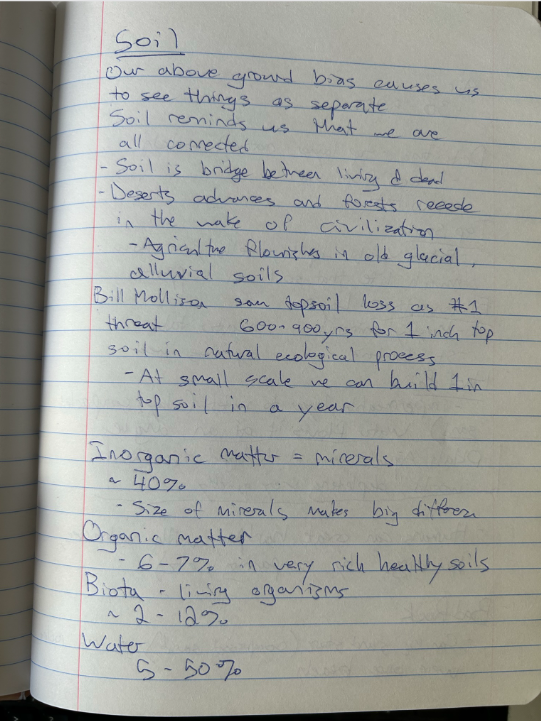 Soil
Our above ground bias causes us
to see things as separate
Soil reminds us that we are
all connected
- Soil is bridge between living & dead
- Deserts advances and forests recede
in the wake of civilization
- Agriculture flourishes in old glacial,
alluvial soils
Bill Mollison saw topsoil loss as #1
threat 600-900yrs for 1 inch top
soil in natural ecological process
- At small scale we can build 1 in
top soil in a year
Inorganic matter = minerals
~ 40%
- Size of minerals makes big differen
Organic matter
- 6-7% in very rich healthy soils
Biota - living organisms
~ 2 - 12%
Water
5 - 50%